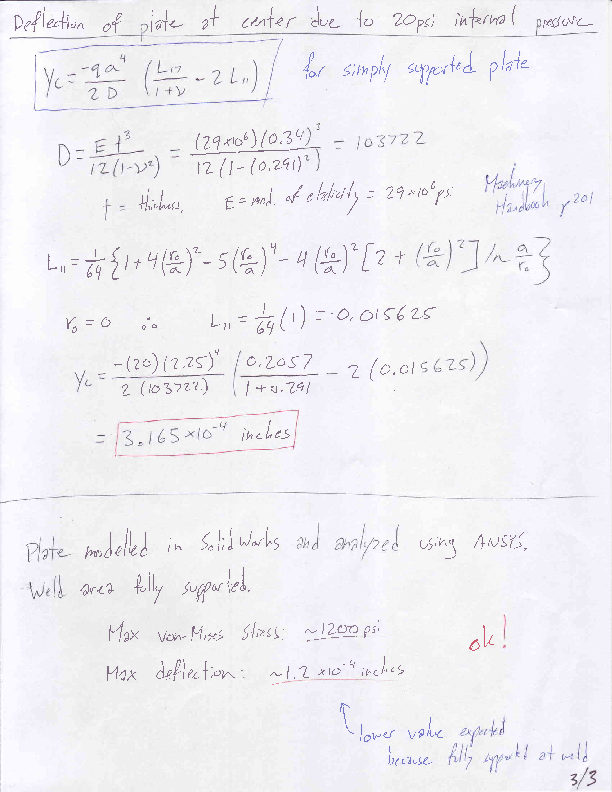 Deflection of plate at center due to 20psi internal pressure
Yc = -qa⁴/2D (L₁₇/1+ν - 2L₁₁) for simply supported plate
D = Et³/12(1-ν²) = (29×10⁶)(0.34)³/12(1-(0.291)²) = 103722
t = thickness, E = mod. of elasticity = 29×10⁶ psi
Machinery
Handbook p 201
L₁₁ = 1/64 {1 + 4(r₀/a)² - 5(r₀/a)⁴ - 4(r₀/a)² [2 + (r₀/a)²] ln a/r₀}
r₀ = 0 ∴ L₁₁ = 1/64 (1) = 0.015625
Yc = -(20)(2.25)⁴/2(103722) (0.2057/1+0.291 - 2(0.015625))
= 3.165×10⁻⁴ inches
Plate modelled in SolidWorks and analyzed using ANSYS.
Weld area fully supported.
Max von-Mises Stress: ~1200 psi
ok!
Max deflection: ~1.2 ×10⁻⁴ inches
lower value expected
because fully supported at weld
3/3